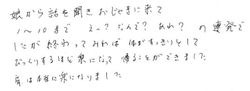 娘から話を聞きおじゃまに来て
1〜10まで え〜?なんで?あれ?の連発で
したが終わってみれば体がすっきりとして
びっくりするほど楽になって帰ることができました。
肩は本当に楽になりました。